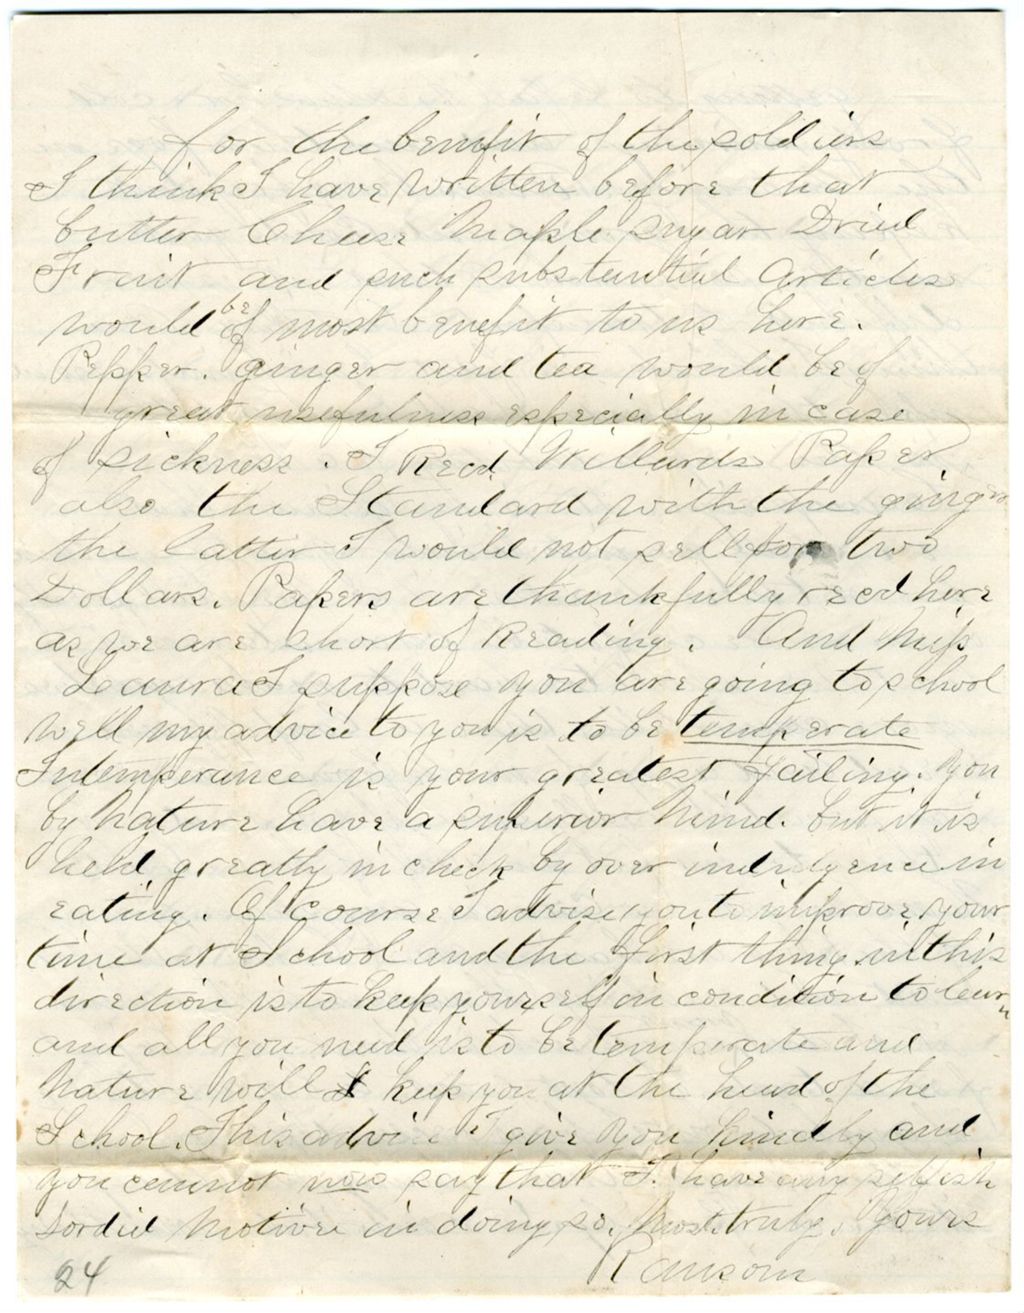 for the benefit of the soldiers
I think I have written before that
butter Cheese Maple sugar Dried
Fruit and such substantial Articles
would be of most benefit to us here.
Pepper. ginger and tea would be of
great usefulness especially in case
of sickness. I Recd Willards Paper
also the Standard with the ginger
the latter I would not sell for two
Dollars. Papers are thankfully recd here
as we are short of Reading. And Miss
Leaura I suppose you are going to school
well my advice to you is to be temperate
Intemperance is your greatest failing. you
by Nature have a superior Mind. but it is
held greatly in check by over indulgence in
eating. Of course I advise you to improve your
time at School and the first thing in this
direction is to keep yourself in condition to learn
and all you need is to be temperate and
Nature will keep you at the head of the
School. This advice I give you kindly and
you cannot now say that I have any selfish
Sordid Motive in doing so. Most truly. Yours
Ransom
24